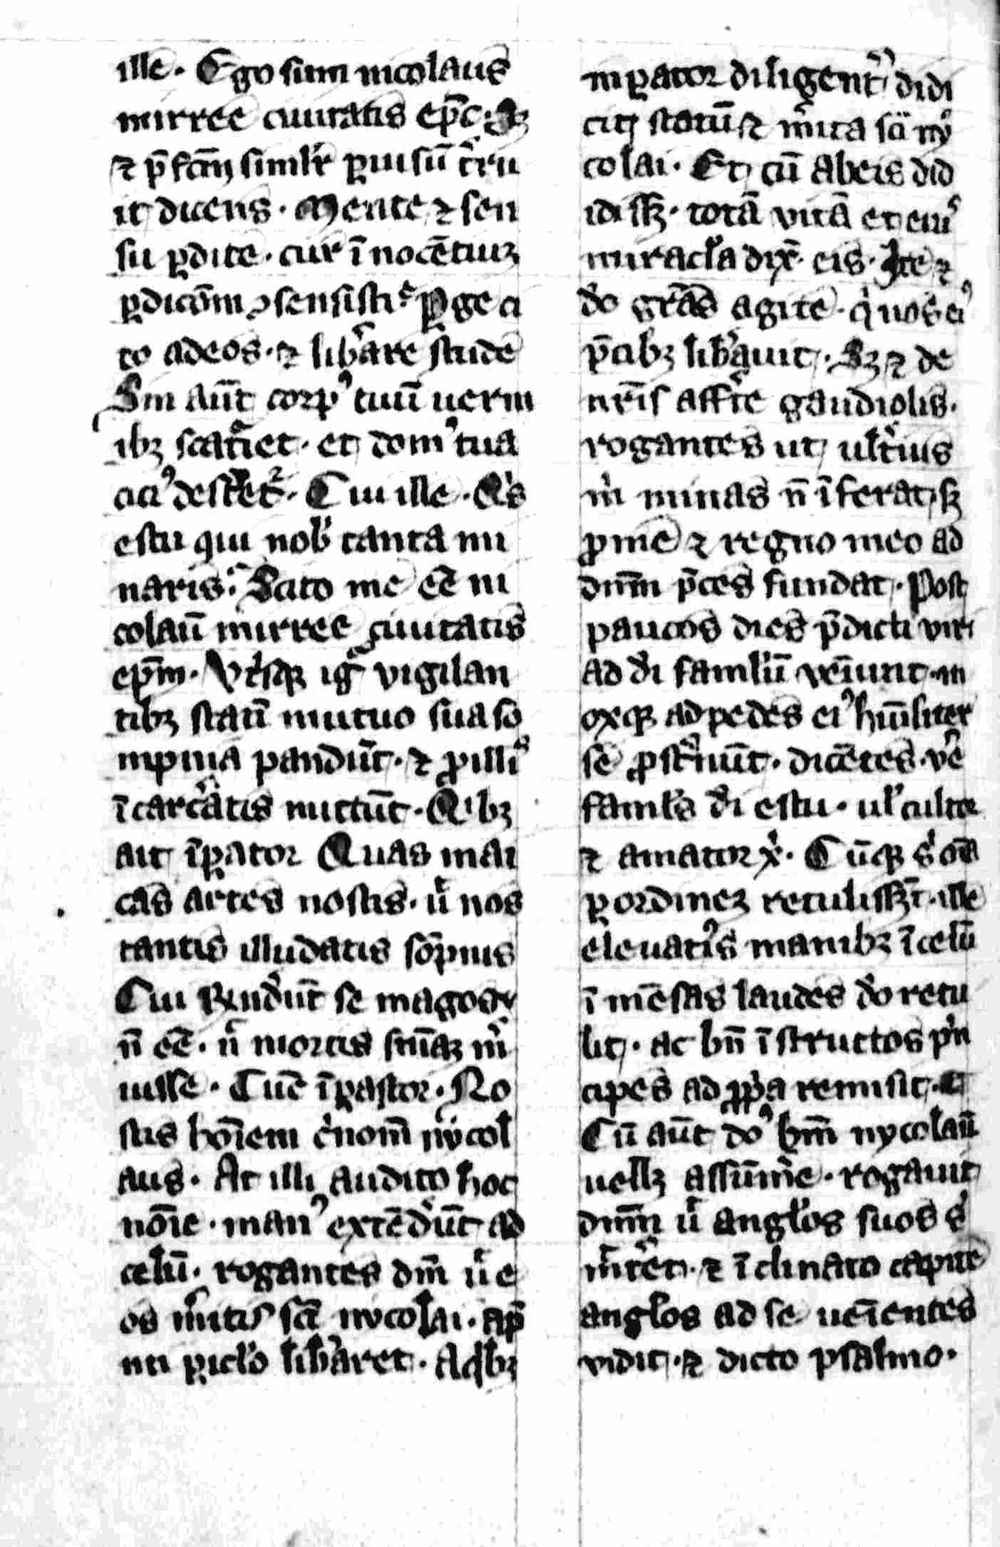 ille· Ego sum nicolaus
mirree ciuitatis ep̄c·
⁊ p̄fc̄m simil'r ꝑuisū t̄ru
it dicens· Mente ⁊ sen
su ꝑdite· cur ī nocētiuꝫ
ꝑdicōm ꝯsensisti· Ꝑge ci
to ad eos· ⁊ lib'are stude
Sin aūt corp⁹ tuū uerm
ibꝫ scat'iet· et dom⁹ tua
Cui ille· Q's
es tu qui nob' tanta mi
naris· Scito me eē ni
colaū mirree ciuitatis
ep̄m· Vt'sqꝫ ig' vigilan
tibꝫ statī mutuo sua so
mpnia pandūt· ⁊ ꝓ illis
ī carc'atis mittūt· Q'bꝫ
ait īꝑator Quas mai
cas artes nostis· ut nos
tantis illudatis sōpnijs
Cui r̄nd'ūt se magos
n̄ eē· n̄ mortis sniāꝫ m'
uisse· Cūe īꝑator· No
stis hōiem c' nom̄ nycol
aus· At illi audito hoc
noīe· man⁹ extēd'ūt ad
celū· rogantes dm̄ ut e
os m'itis sc̄i nycolai· a p̄n
ti ꝑicl'o lib'aret· Ad qbꝫ
inꝑator diligent' didi
cit statū ⁊ m'ita sc̄i ny
colai· Et cū ab eis did
idissꝫ· totā vitā et ei⁹
miracl'a dix̄· eis· Ite ⁊
do grās agite· q' uos ei⁹
p̄cibꝫ lib'auit· Sꝫ ⁊ de
nr̄is affr̄te gaudiolis·
rogantes ut ult'ius
m' minas n̄ īferat· sꝫ
ꝓ me ⁊ regno meo ad
dnm̄ p̄ces fundat· Post
paucos dies p̄dicti viri
ad d'i famlū' veniunt· m
oxqꝫ ad pedes ei⁹ hūil'iter
se ꝓst'nūt· dicētes· v'e
famls' d'i es tu· ul' cultor
⁊ amator x'· Cūqꝫ s' oīa
ꝑ ordinez retulissꝫt· ille
eleuatis manibꝫ ī celū
ī mēsas laudes d'o retu
lit· ac bn̄ ī structos p'n
cipes ad ꝓp'a remisit·
Cū aūt do⁹ bm̄ nycolaū
uellꝫ assūm'e· rogauit
dnm̄ ut angl'os suos s'
m̄t'et· ⁊ ī clinato capite
angl'os ad se ueīentes
vidit· ⁊ dicto psalmo·